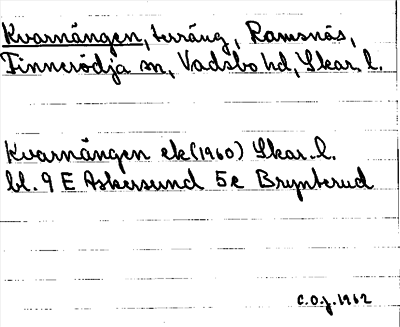 Kvarnängen, turäng, Ramsnäs,
Finnerödja sn, Vadsbo hd, Skar. l.
Kvarnängen ek (1960) Skar. l.
bl. 9 E Askersund 5e Brynterud
C.O.J. 1962